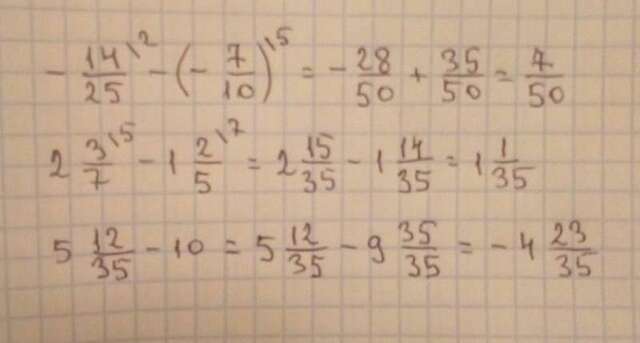 - 14/25 \2 - (- 7/10) \5 = - 28/50 + 35/50 = 7/50
2 3/7 \5 - 1 2/5 \7 = 2 15/35 - 1 14/35 = 1 1/35
5 12/35 - 10 = 5 12/35 - 9 35/35 = - 4 23/35